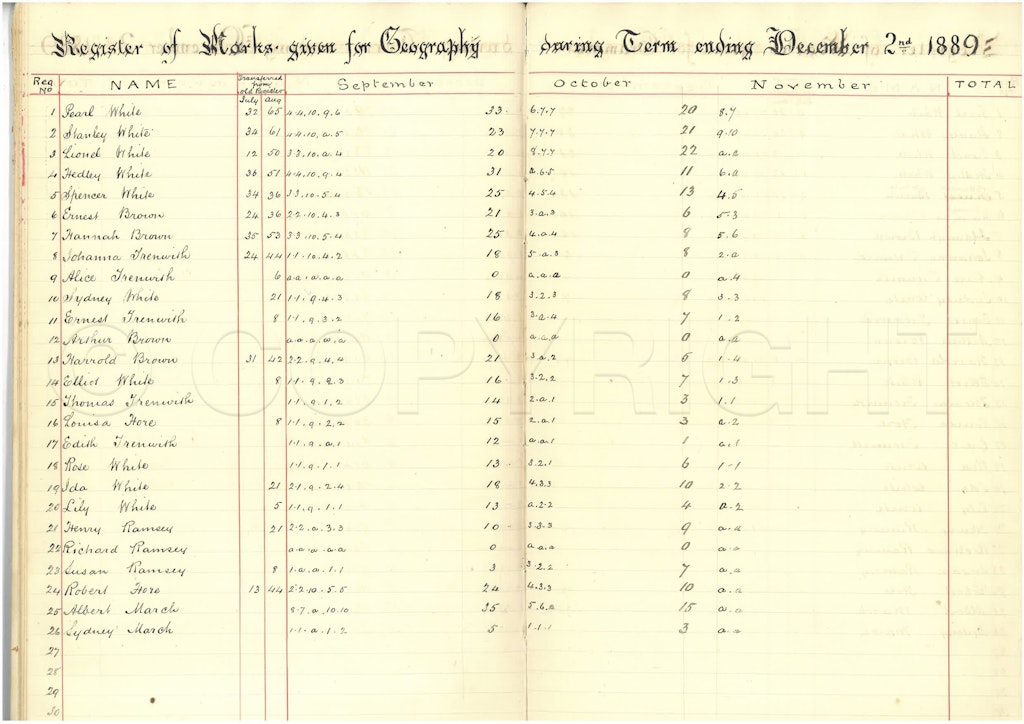 Register of Marks given for Geography during Term ending December 2nd 1889
Reg No NAME Transferred from old Register September October November TOTAL
July Aug
1 Pearl White 32 65 4.4.10.9.6 33 6.7.7 20 8.7
2 Stanley White 34 61 4.4.10.a.5 23 7.7.7 21 9.10
3 Lionel White 12 50 3.3.10.a.4 20 8.7.7 22
4 Hedley White 36 51 4.4.10.9.4 31 11
5 Spencer White 34 36 3.3.10.5.4 25 4.5.4 13 4.5
6 Ernest Brown 24 36 2.2.10.4.3 21 3.a.3 6 5.3
7 Hannah Brown 35 53 3.3.10.5.4 25 4.a.4 8 5.6
8 Johanna Trenwith 24 44 1.1.10.4.2 18 5.a.3 8 2.a
9 Alice Trenwith 6 a.a.a.a.a 0 a.a.a 0 a.4
10 Sydney White 21 1.1.9.4.3 18 3.2.3 8 3.3
11 Ernest Trenwith 8 1.1.9.3.2 16 7 1.2
12 Arthur Brown a.a.a.a.a 0 a.a.a 0
13 Harrold Brown 31 42 2.2.9.4.4 21 3.a.2 5 1.4
14 Elliot White 8 1.1.9.2.3 16 3.2.2 7 1.3
15 Thomas Trenwith 1.1.9.1.2 14 2.a.1 3 1.1
16 Louisa Hore 8 1.1.9.2.2 15 2.a.1 3 a.2
17 Edith Trenwith 1.1.9.a.1 12 a.a.1 1 a.1
18 Rose White 1.1.9.1.1 13 3.2.1 6 1.1
19 Ida White 21 2.1.9.2.4 18 4.3.3 10 2.2
20 Lily White 5 1.1.9.1.1 13 a.2.2 4 a.2
21 Henry Ramsey 21 2.2.a.3.3 10 3.3.3 9
22 Richard Ramsey a.a.a.a.a 0 a.a.a 0 a.a
23 Susan Ramsey 8 1.a.a.1.1 3 3.2.2 7 a.a
24 Robert Hore 13 44 2.2.10.5.5 24 4.3.3 10 a.a
25 Albert March 8.7.a.10.10 35 15 a.a
26 Sydney March 1.1.a.1.2 5 1.1.1 3 a.a
27
28
29
30
© COPYRIGHT